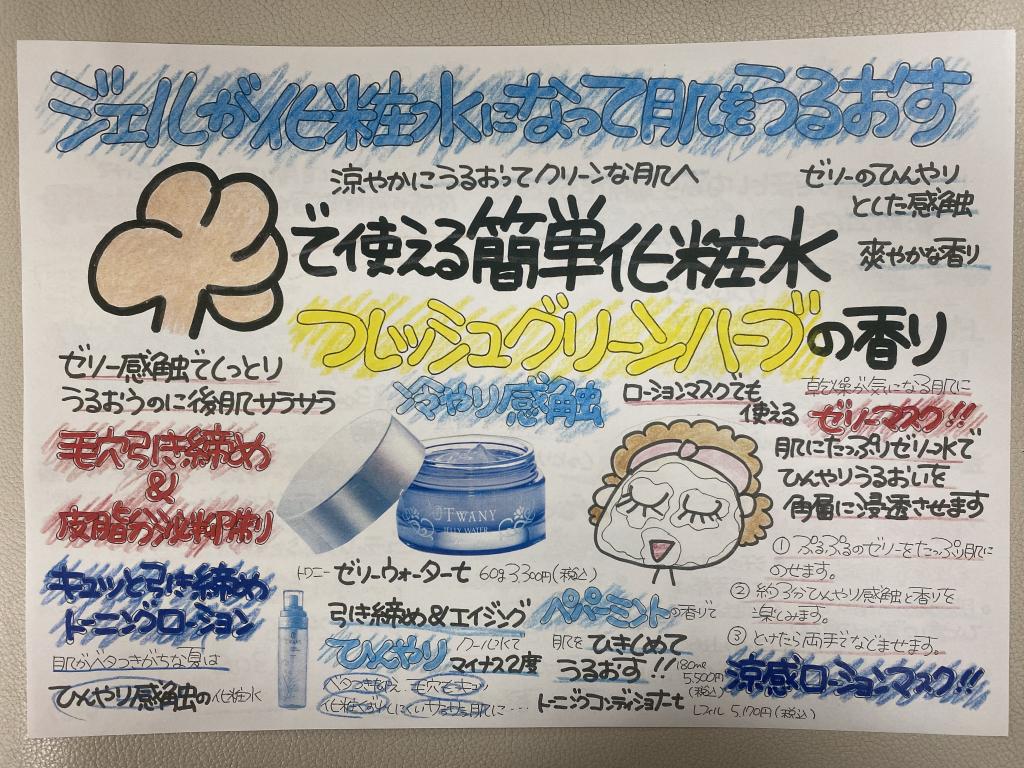 ジェルが化粧水になって肌をうるおす
涼やかにうるおってクリーンな肌へ
ゼリーのひんやり
とした感触
爽やかな香り
で使える簡単化粧水
フレッシュグリーンハーブの香り
ゼリー感触でしっとり
うるおうのに後肌サラサラ
毛穴引き締め
&
皮脂分泌抑制
キュッと引き締め
トーニングローション
肌がベタつきがちな夏は
ひんやり感触の化粧水
冷やり感触
TWANY
JELLY WATER
トワニー ゼリーウォーターt 60g 3,300円(税込)
引き締め&エイジング
ひんやり クール水で
マイナス2度
ベタつき抑え 毛穴キュッ
化粧くずれしにくいサラサラ肌に…
ペパーミントの香りで
肌をひきしめて
うるおす!!
180mL
5,500円
(税込)
トーニングコンディショナーt レフィル 5,170円(税込)
ローションマスクでも
使える
乾燥が気になる肌に
ゼリーマスク!!
肌にたっぷりゼリー水で
ひんやりうるおいを
角層に浸透させます
① ぷるぷるのゼリーをたっぷり肌に
のせます。
② 約3分ひんやり感触と香りを
楽しみます。
③ とけたら両手でなじませます。
涼感ローションマスク!!